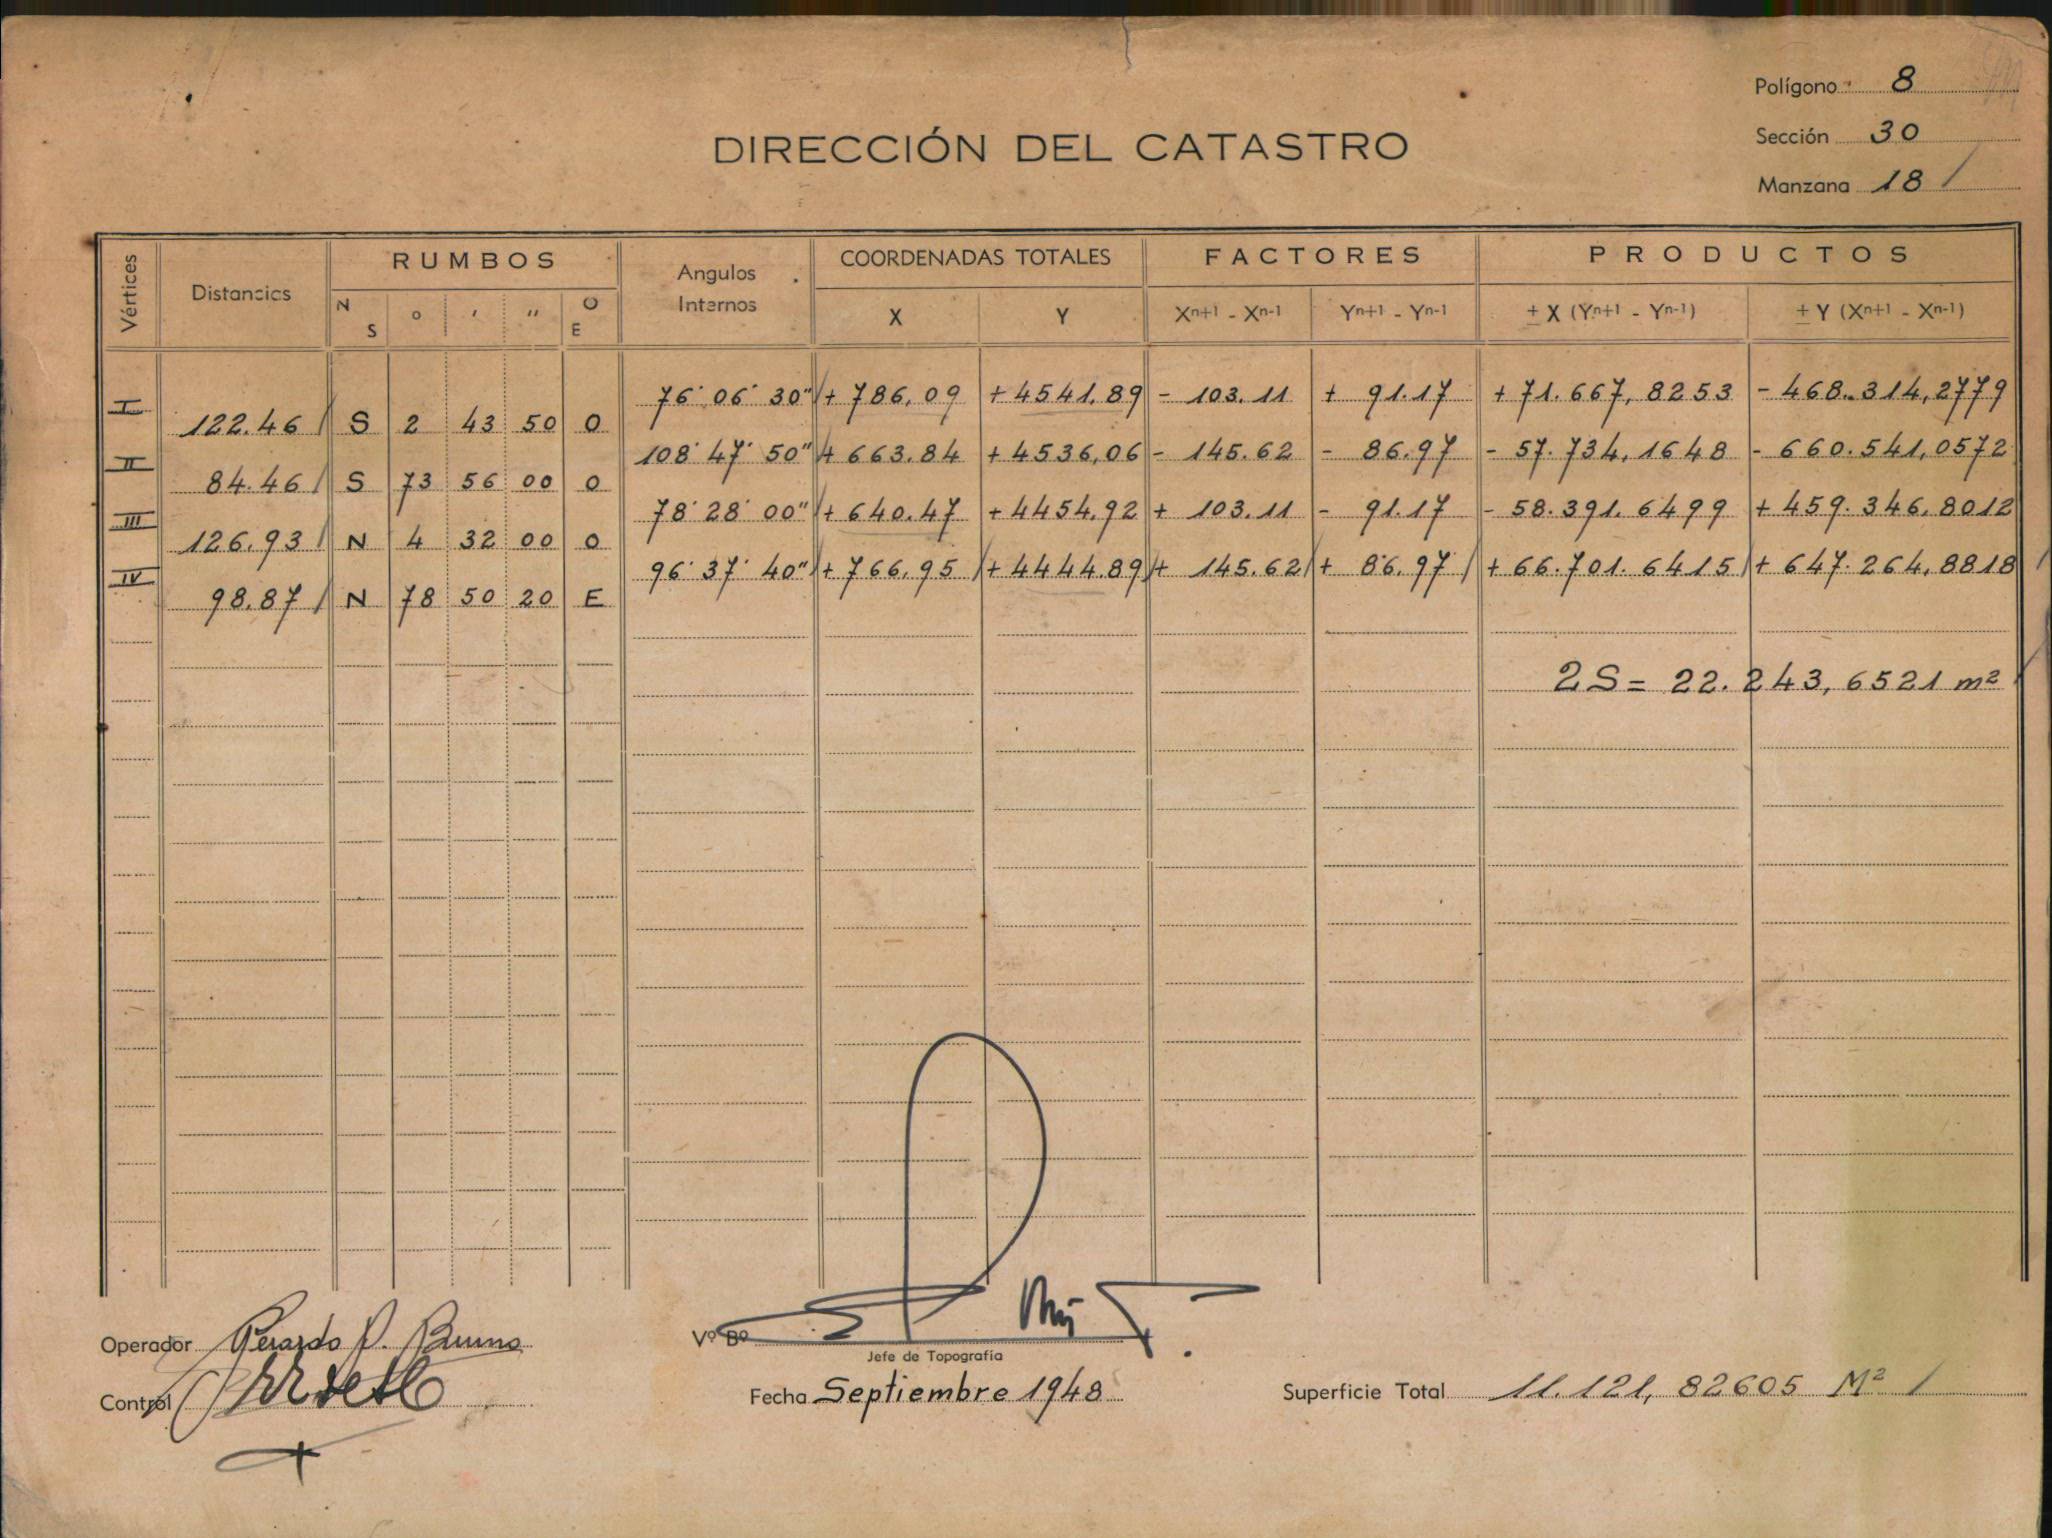 Polígono 8
DIRECCIÓN DEL CATASTRO
Sección 30
Manzana 18 /
Vértices Distancias RUMBOS Angulos Internos COORDENADAS TOTALES FACTORES PRODUCTOS
N S ° ' " O E X Y Xn+1 - Xn-1 Yn+1 - Yn-1 ± X (Yn+1 - Yn-1) ± Y (Xn+1 - Xn-1)
I 76° 06' 30" + 786,09 + 4541.89 - 103.11 + 91.17 + 71.667,8253 - 468.314,2779
122.46 / S 2 43 50 O
II 108° 47' 50" + 663.84 + 4536,06 - 145.62 - 86.97 - 57.734,1648 - 660.541,0572
84.46 / S 73 56 00 O
III 78° 28' 00" + 640.47 + 4454,92 + 103.11 - 91.17 - 58.391.6499 + 459.346,8012
126.93 / N 4 32 00 O
IV 96° 37' 40" + 766,95 / + 4444.89 / + 145.62 / + 86.97 / + 66.701.6415 / + 647.264,8818 /
98.87 / N 78 50 20 E
2S = 22.243,6521 m²
Operador Gerardo P. Bruno
Vº Bº
Jefe de Topografía
Control
Fecha Septiembre 1948
Superficie Total 11.121,82605 M² /